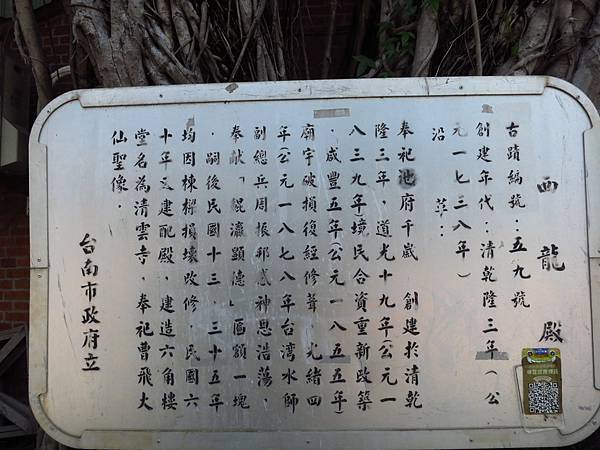 西龍殿
古蹟編號：五九號
創建年代：清乾隆三年（公
元一七三八年）
沿革：
奉祀池府千歲　創建於清乾
隆三年，道光十九年（公元一
八三九年）境民合資重新改築
，咸豐五年（公元一八五五年）
廟宇破損復經修葺，光緒四
年（公元一八七八年台灣水師
副總兵周振邦感神恩浩蕩，
奉獻「鯤瀛顯德」匾額一塊
，嗣後民國十三，三十五年
均因棟樑損壞改修，民國六
十年又建配殿，建造六角樓
堂名為清雲寺，奉祀曹飛大
仙聖像．
台南市政府立